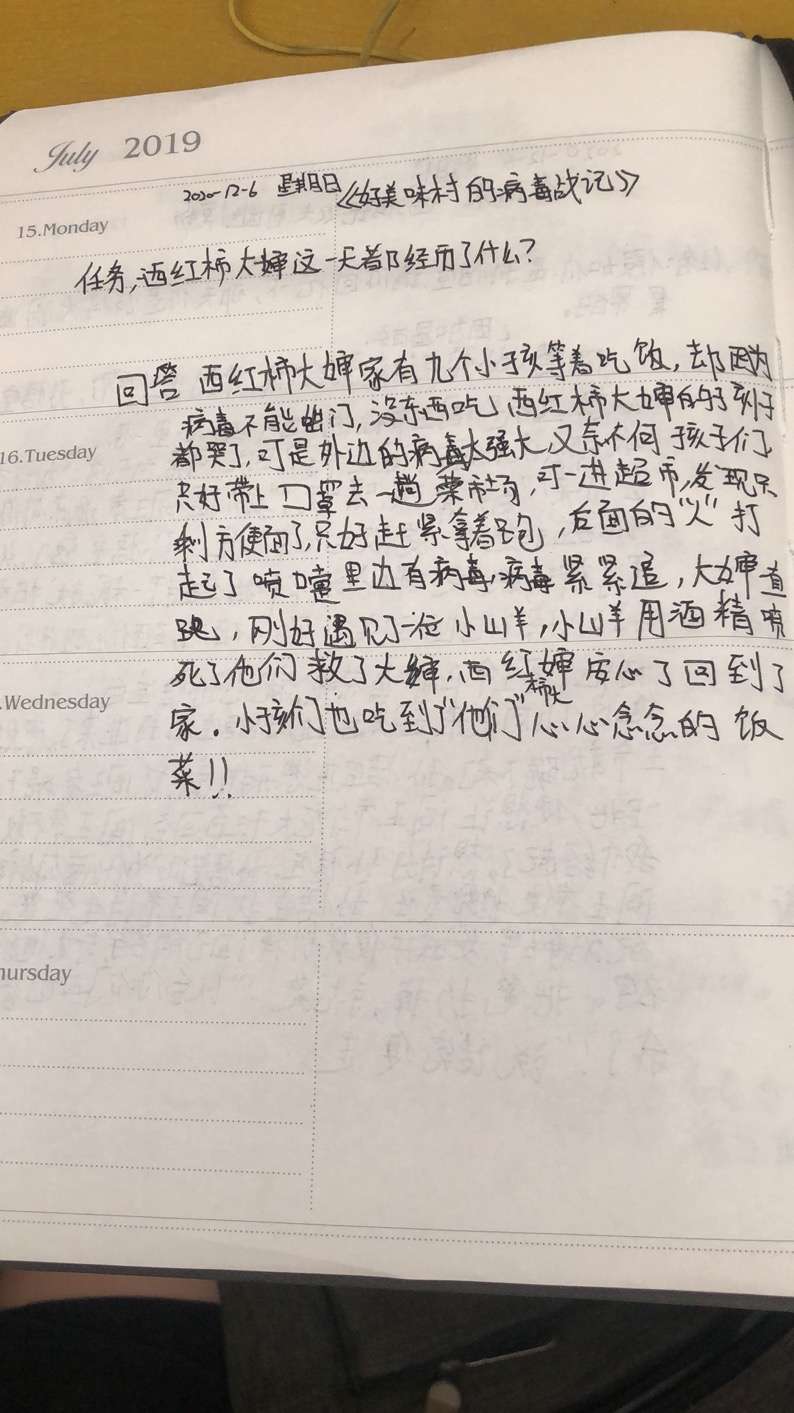 July 2019
2020-12-6 星期日 《好美味村的病毒战记》
15.Monday
任务,西红柿大婶这一天都经历了什么?
回答 西红柿大婶家有九个小孩等着吃饭,却因为
病毒不能出门,没东西吃,西红柿大婶的孩子
16.Tuesday
都哭了,可是外边的病毒太强大,又奈不何孩子们,
只好带上口罩去一趟菜市场,可一进超市,发现只
剩方便面了,只好赶紧拿着跑,后面的“人”打
起了喷嚏里边有病毒,病毒紧紧追,大婶直
跑,刚好遇见了一位小山羊,小山羊用酒精喷
死了他们救了大婶,西红柿大婶安心了回到了
.Wednesday
家.小孩们也吃到了“他们”心心念念的饭
菜!!
hursday